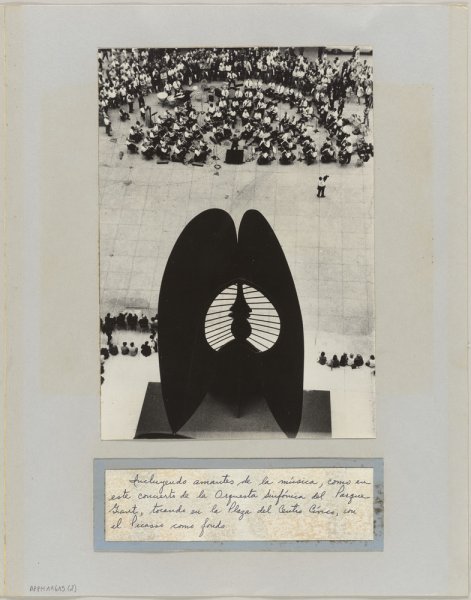 Incluyendo amantes de la música, como en
este concierto de la Orquesta Sinfónica del Parque
Grant, tocando en la Plaza del Centro Cívico, con
el Picasso como fondo.